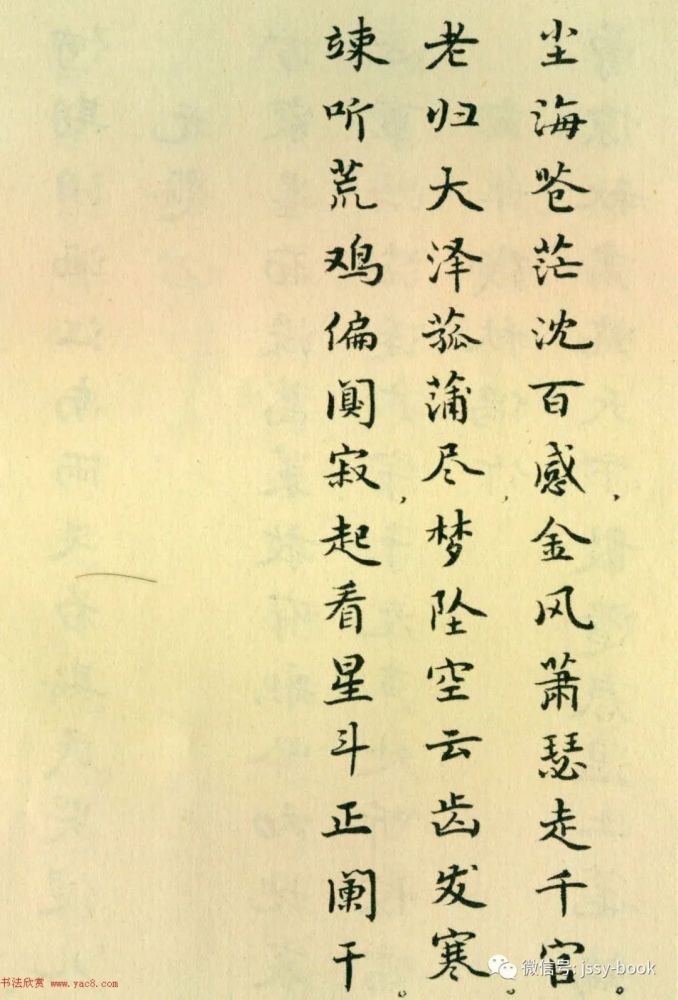 尘海苍茫沈百感，金风萧瑟走千官。
老归大泽菰蒲尽，梦坠空云齿发寒。
竦听荒鸡偏阒寂，起看星斗正阑干。
微信号: jssy-book
书法欣赏 www.yac8.com